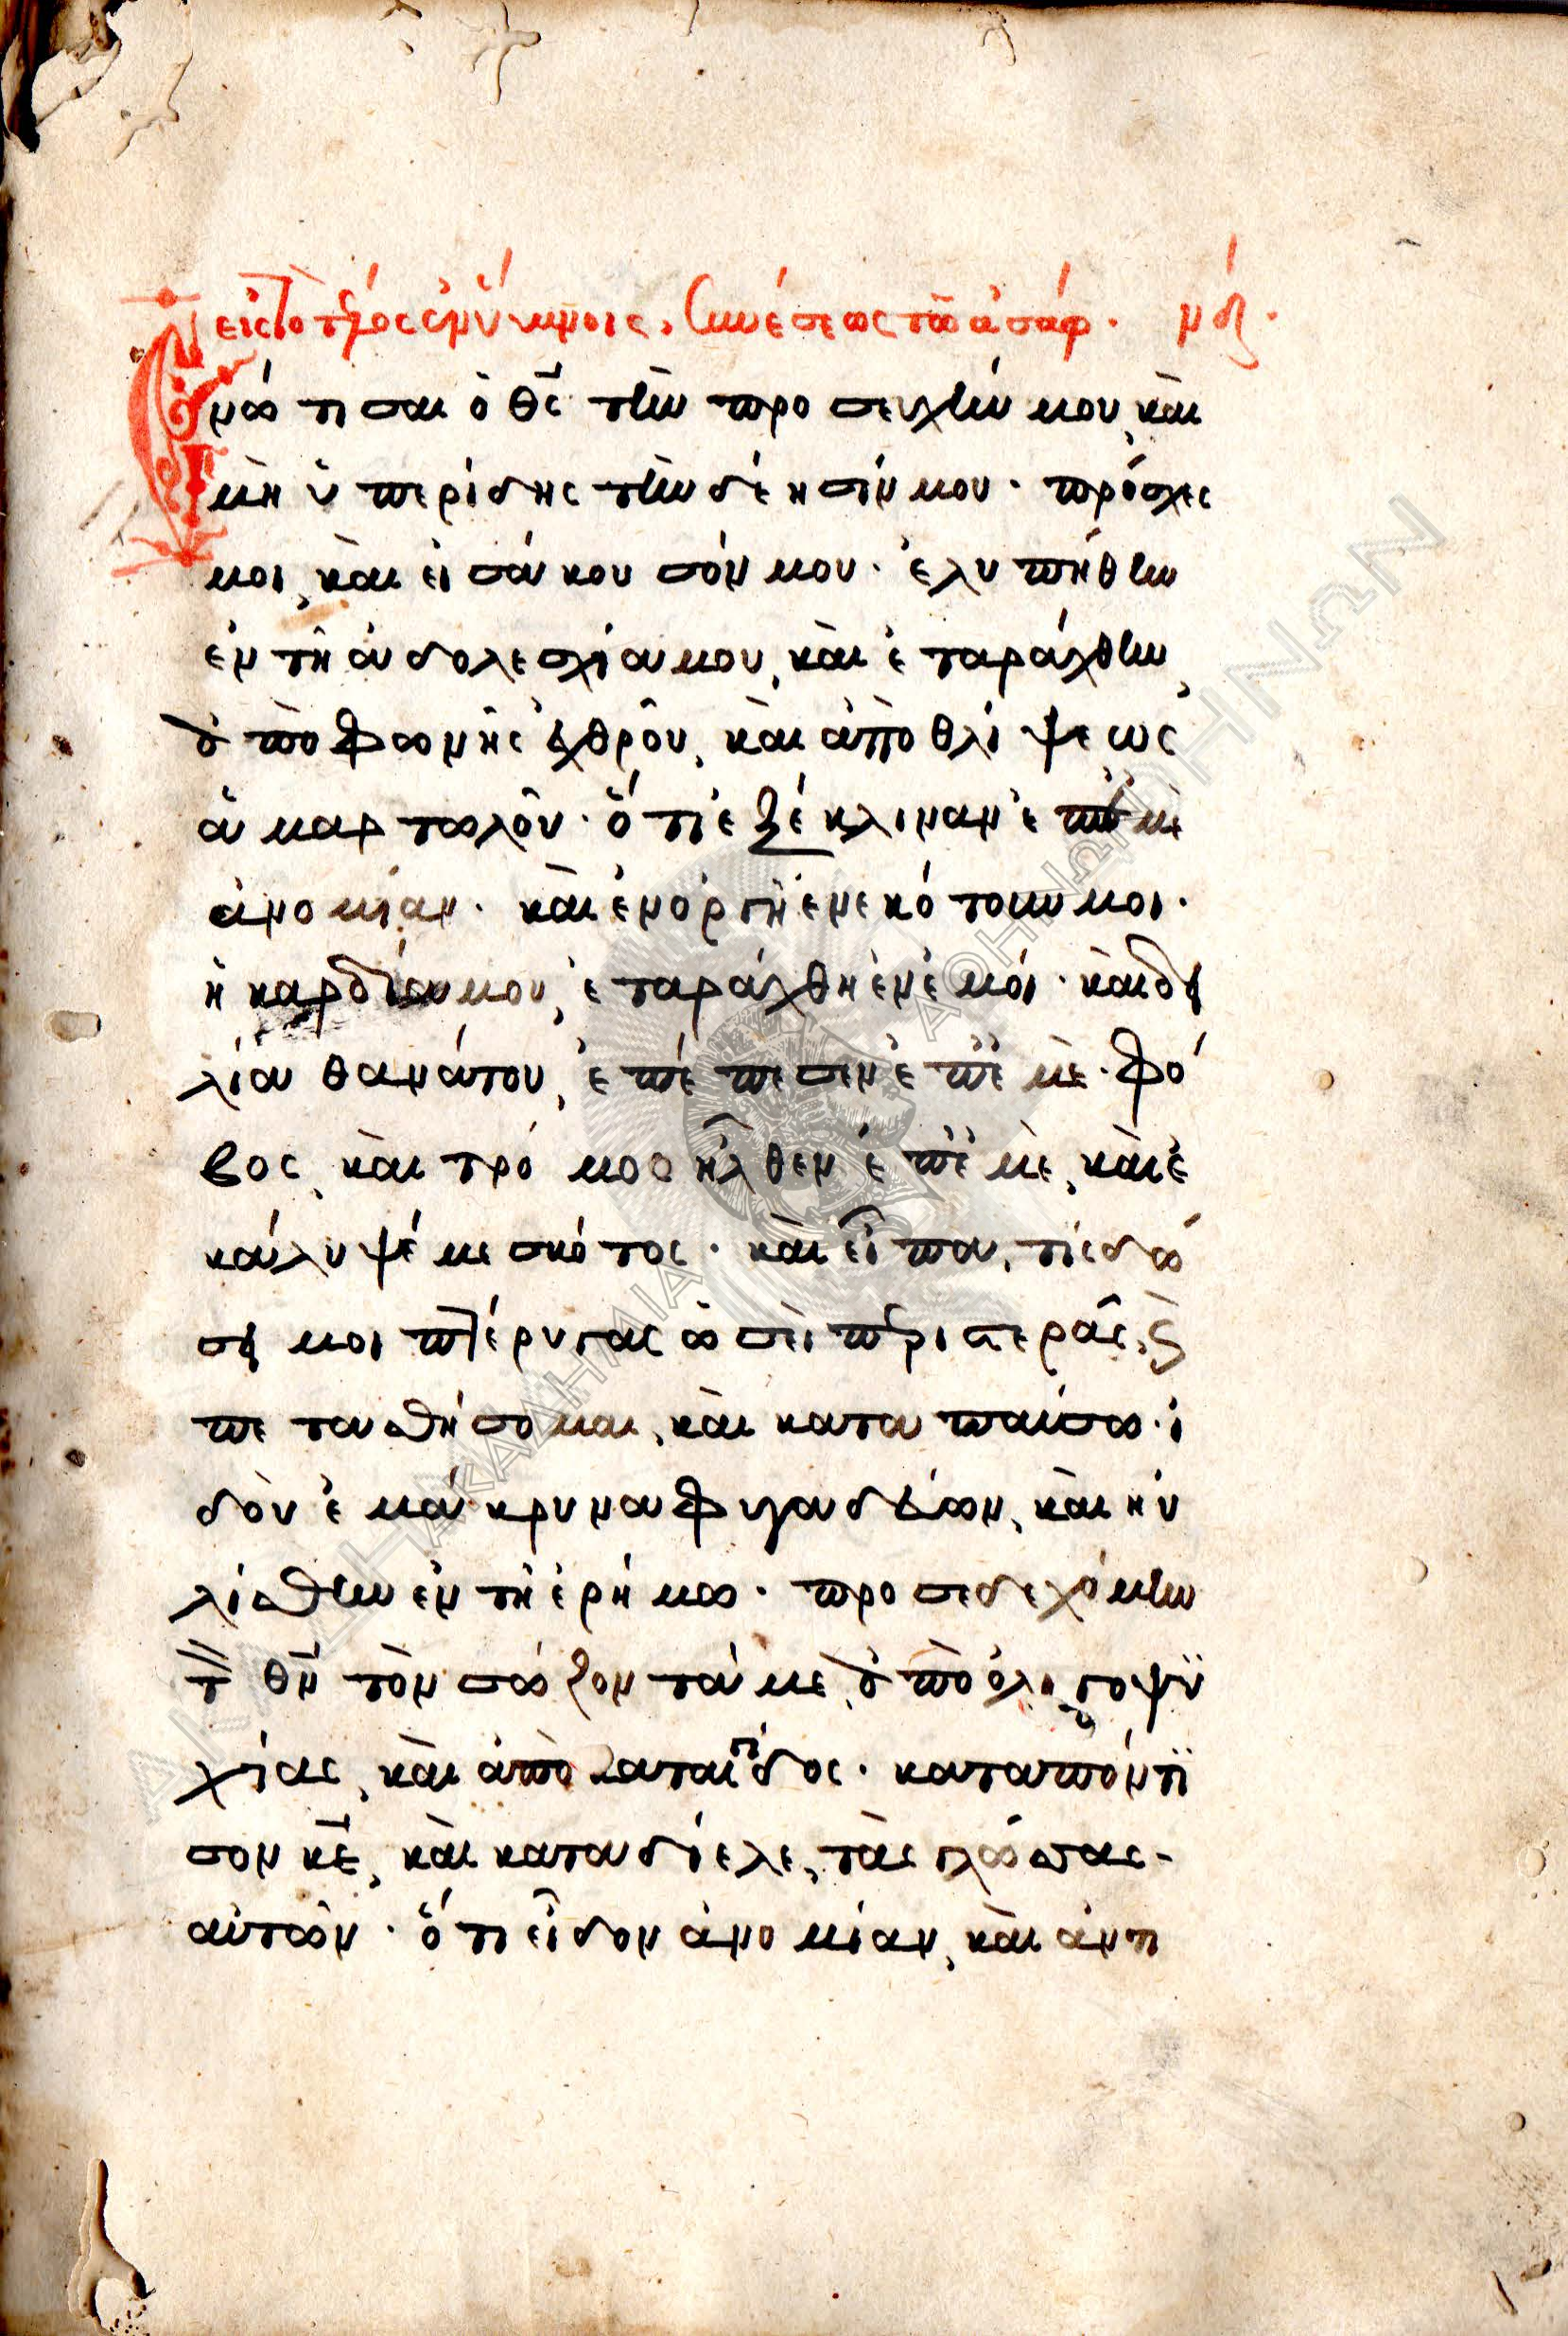 εἰς τὸ τέλος ἐν ὕμνοις. Συνέσεως τῶ ἀσάφ. νδ.
Ἐνώτισαι ὁ θς̅ τὴν προσευχήν μου, καὶ
μὴ ὑπερίδης τὴν δέησίν μου. πρόσχες
μοι, καὶ εἰσάκουσόν μου. ἐλυπήθην
ἐν τῆ ἀδολεσχία μου, καὶ ἐταράχθην,
ἀπὸ φωνῆς ἐχθροῦ, καὶ ἀπὸ θλίψεως
ἁμαρτωλοῦ. ὅτι ἐξέκλιναν ἐπ' ἐμὲ
ἀνομίαν. καὶ ἐν ὀργῆ ἐνεκότουν μοι.
ἡ καρδία μου, ἐταράχθη ἐν ἐμοί. καὶ δει
λία θανάτου, ἐπέπεσεν ἐπ' ἐμὲ. φό
βος, καὶ τρόμος ἦλθεν ἐπ' ἐμὲ, καὶ ἐ
κάλυψέ με σκότος. καὶ εἶπα, τίς δώ
σει μοι πτέρυγας ὡσεὶ περιστερᾶς, ϗ
πετασθήσομαι, καὶ καταπαύσω. ἰ
δοὺ ἐμάκρυνα φυγαδεύων, καὶ ηὐ
λίσθην ἐν τῆ ἐρήμω. προσεδεχόμην
τ̀ θν̅ τὸν σώζοντά με, ἀπὸ ὀλιγοψυ
χίας, καὶ ἀπὸ καταιγίδος. καταπόντι
σον κε̅, καὶ καταδίελε, τὰς γλώσσας
αὐτῶν. ὅτι εἶδον ἀνομίαν, καὶ ἀντι